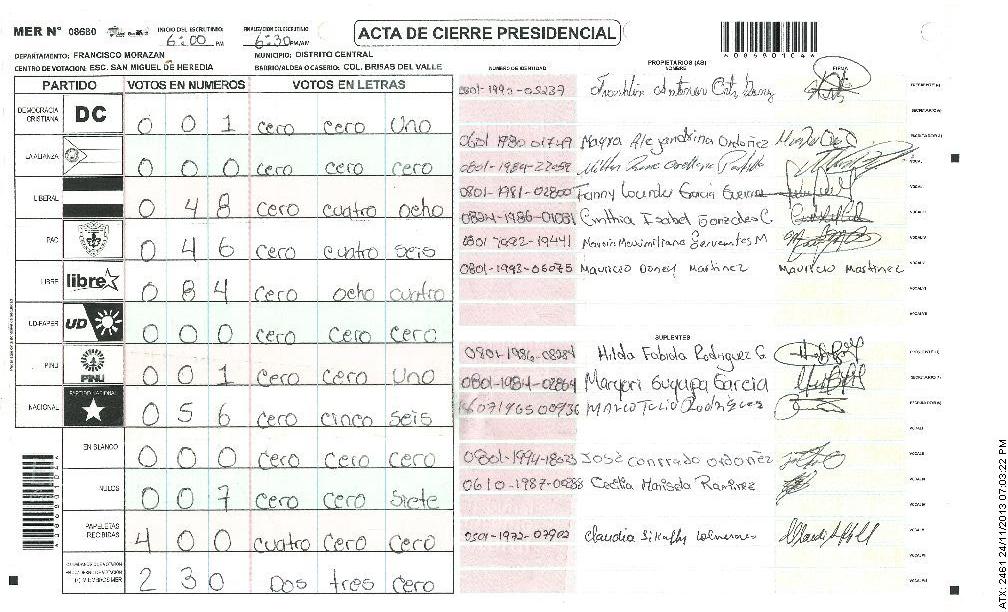 MER N° 08680 INICIO DEL ESCRUTINIO: 6:00 PM FINALIZACION DEL ESCRUTINIO: 6:30 PM/AM
ACTA DE CIERRE PRESIDENCIAL
DEPARTAMENTO: FRANCISCO MORAZAN MUNICIPIO: DISTRITO CENTRAL
CENTRO DE VOTACION: ESC. SAN MIGUEL DE HEREDIA BARRIO/ALDEA O CASERIO: COL. BRISAS DEL VALLE
NUMERO DE IDENTIDAD PROPIETARIOS (AS) NOMBRE FIRMA
PARTIDO VOTOS EN NUMEROS VOTOS EN LETRAS
DEMOCRACIA CRISTIANA DC 0 0 1 cero cero uno
LA ALIANZA 0 0 0 cero cero cero
LIBERAL 0 4 8 cero cuatro ocho
PAC 0 4 6 cero cuatro seis
LIBRE libre 0 8 4 cero ocho cuatro
UD-FAPER UD 0 0 0 cero cero cero
PINU PINU 0 0 1 cero cero uno
NACIONAL PARTIDO NACIONAL 0 5 6 cero cinco seis
EN BLANCO 0 0 0 cero cero cero
NULOS 0 0 7 cero cero siete
PAPELETAS RECIBIDAS 4 0 0 cuatro cero cero
2 3 0 Dos tres cero
0801-1990-05237 Franklin Antonio
0601 1980 01749 Mayra Alejandrina Ordoñez
0801-1984-22059
0801-1981-02800 Fanny Lourdes Garcia
Cinthia Isabel Gonzales C.
Maximiliano Cervantes M
0801-1993-06075 Mauricio Doney Martinez Mauricio Martinez
SUPLENTES
0801-1986-08284 Hilda Fabiola Rodriguez G.
0801-1984-02864 Margori Suyapa Garcia
Marco Tulio Rodriguez
0801-1994-18623 José conrrado ordoñez
0610-1987-00288 Cecilia Marisela Ramirez
0501-1972-07902 Claudia Sikaffy
ATX: 2461 24/11/2013 07:03:22 PM